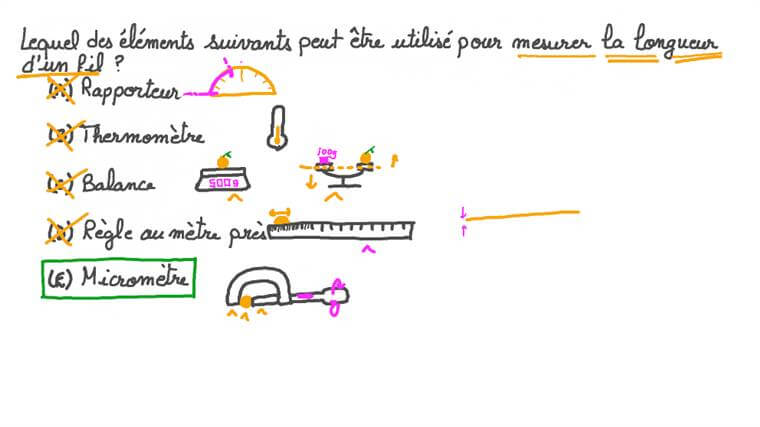 Lequel des éléments suivants peut être utilisé pour mesurer la longueur
d'un fil ?
(A) Rapporteur
(B) Thermomètre
100g
(C) Balance
500g
(D) Règle au mètre près
(E) Micromètre